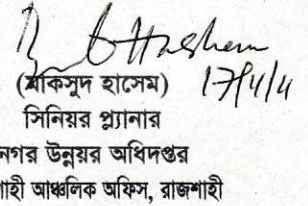 (মাকসুদ হাসেম) 17/4/11
সিনিয়র প্ল্যানার
নগর উন্নয়র অধিদপ্তর
শাহী আঞ্চলিক অফিস, রাজশাহী